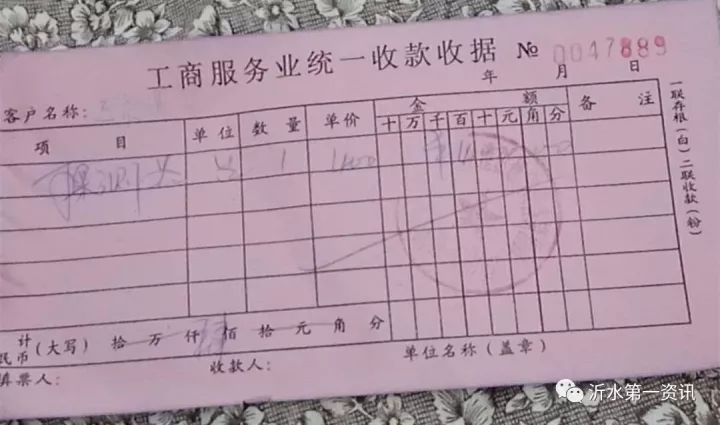 工商服务业统一收款收据 № 0047889
年 月 日
客户名称:
项 目 单位 数量 单价 金 额 备 注
十 万 千 百 十 元 角 分
1
计
民币(大写) 拾 万 仟 佰 拾 元 角 分
填票人: 收款人: 单位名称(盖章)
一联存根(白)二联收款(粉)
沂水第一资讯